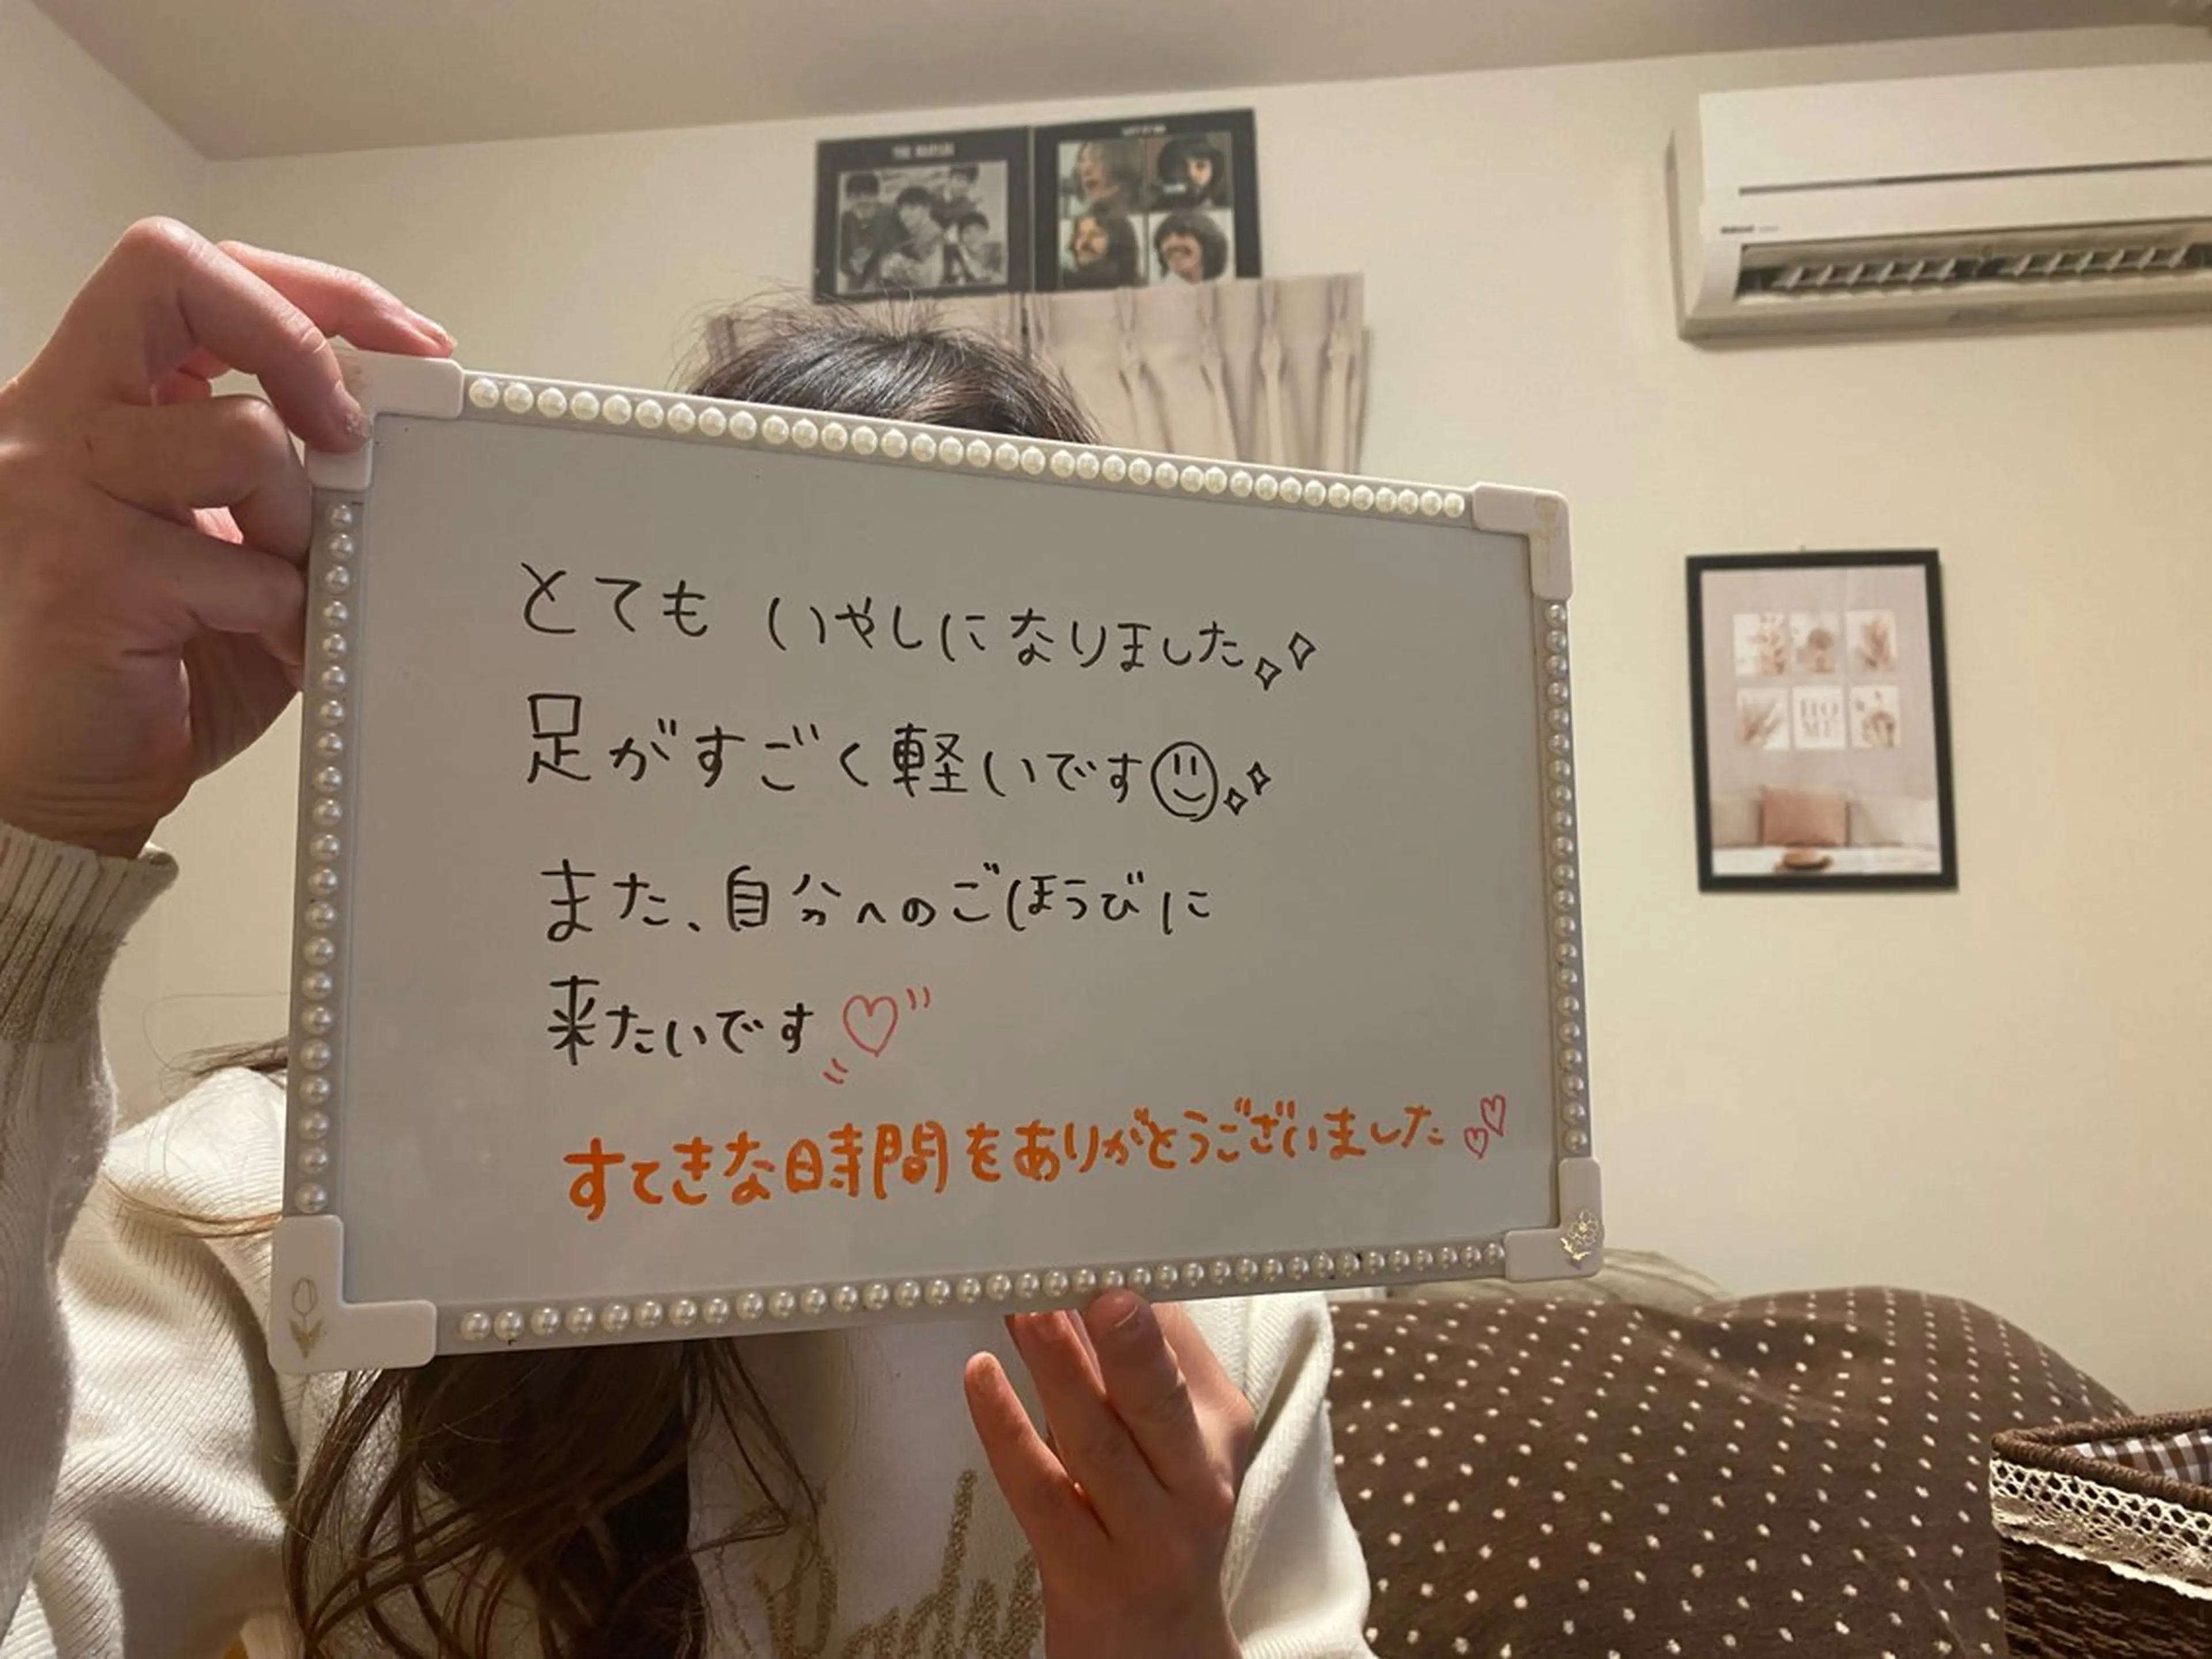 THE BEATLES
LET IT BE
HO
ME
とても いやしになりました
足がすごく軽いです
また、自分へのごほうびに
来たいです
すてきな時間をありがとうございました